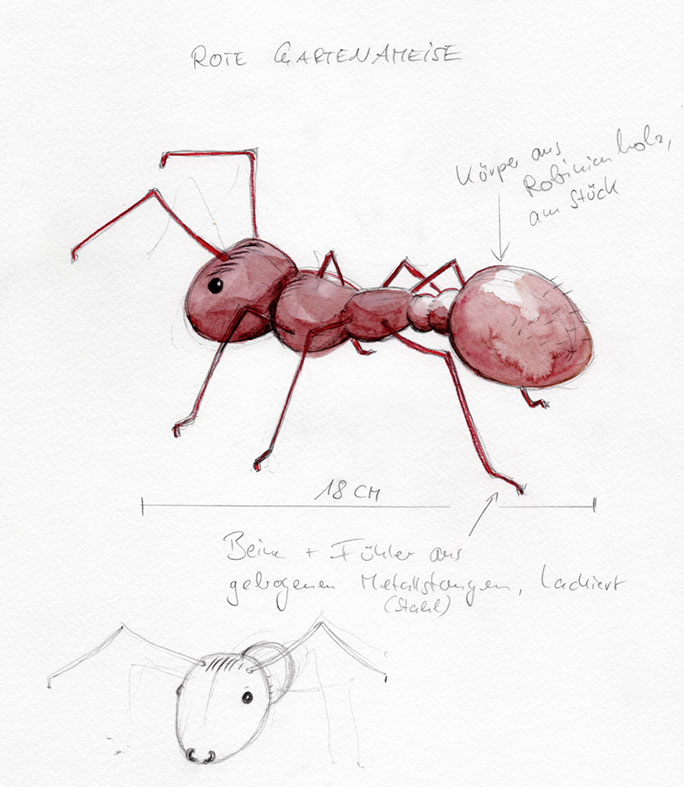 ROTE GARTENAMEISE
Körper aus
Robinienholz,
am Stück
18 CM
Beine + Fühler aus
gebogenen Metallstangen, lackiert
(Stahl)